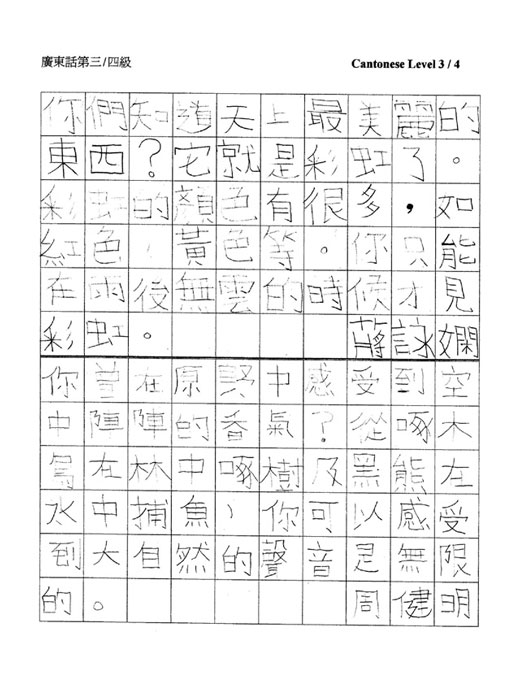 廣東話第三/四級
Cantonese Level 3 / 4
你們知道天上最美麗的
東西？它就是彩虹了。
彩虹的顏色有很多，如
紅色，黃色等。你只能
在雨後無雲的時候才見
彩虹。蔣詠嫻
你曾在原野中感受到空
中陣陣的香氣？從啄木
鳥在林中啄樹及黑熊在
水中捕魚，你可以感受
到大自然的聲音是無限
的。周健明